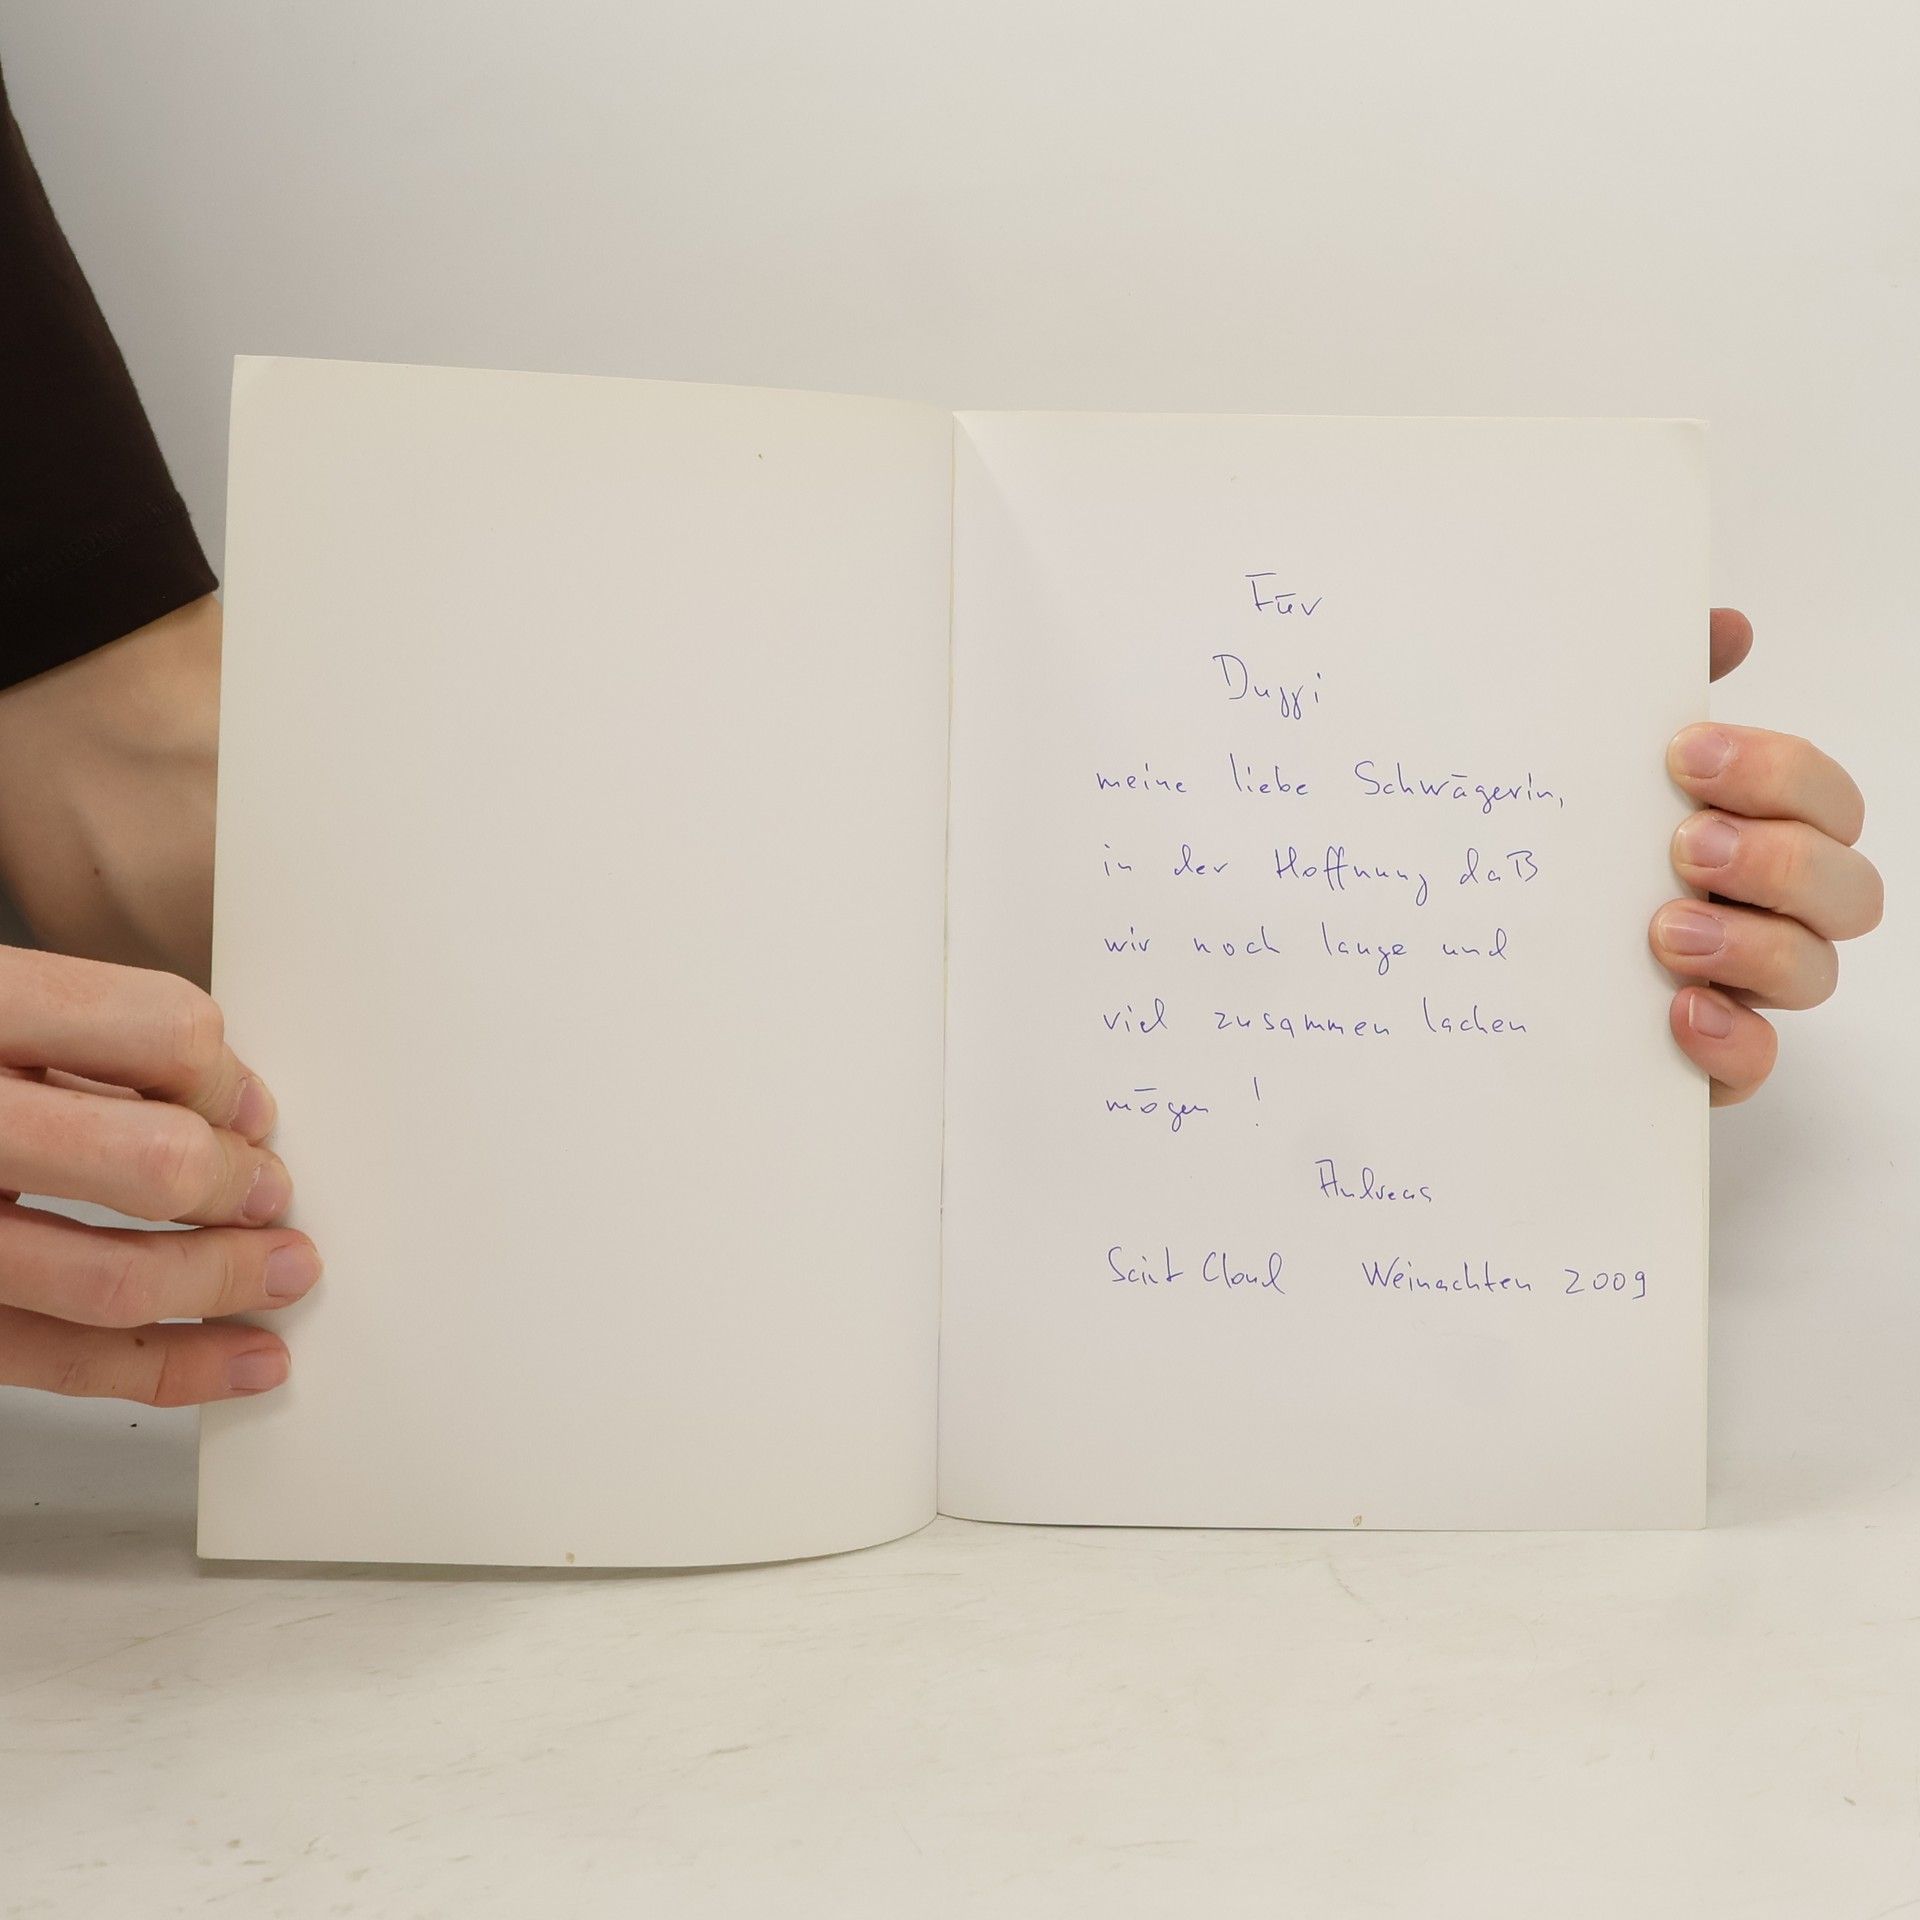 Für
Duggi
meine liebe Schwägerin,
in der Hoffnung daß
wir noch lange und
viel zusammen lachen
mögen !
Andreas
Saint Cloud Weinachten 2009